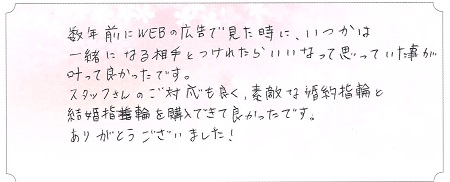 数年前にWEBの広告で見た時に、いつかは
一緒になる相手とつけれたらいいなって思っていた事が
叶って良かったです。
スタッフさんのご対応も良く、素敵な婚約指輪と
結婚指輪を購入できて良かったです。
ありがとうございました!